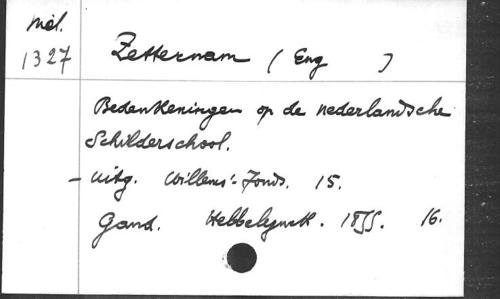 Mél.
1327
Zetternam (Eng )
Bedenkeningen op de nederlandsche
Schilderschool.
- Uitg. Willems'-Fonds. 15.
Gand. Hebbelynck. 1855. 16.